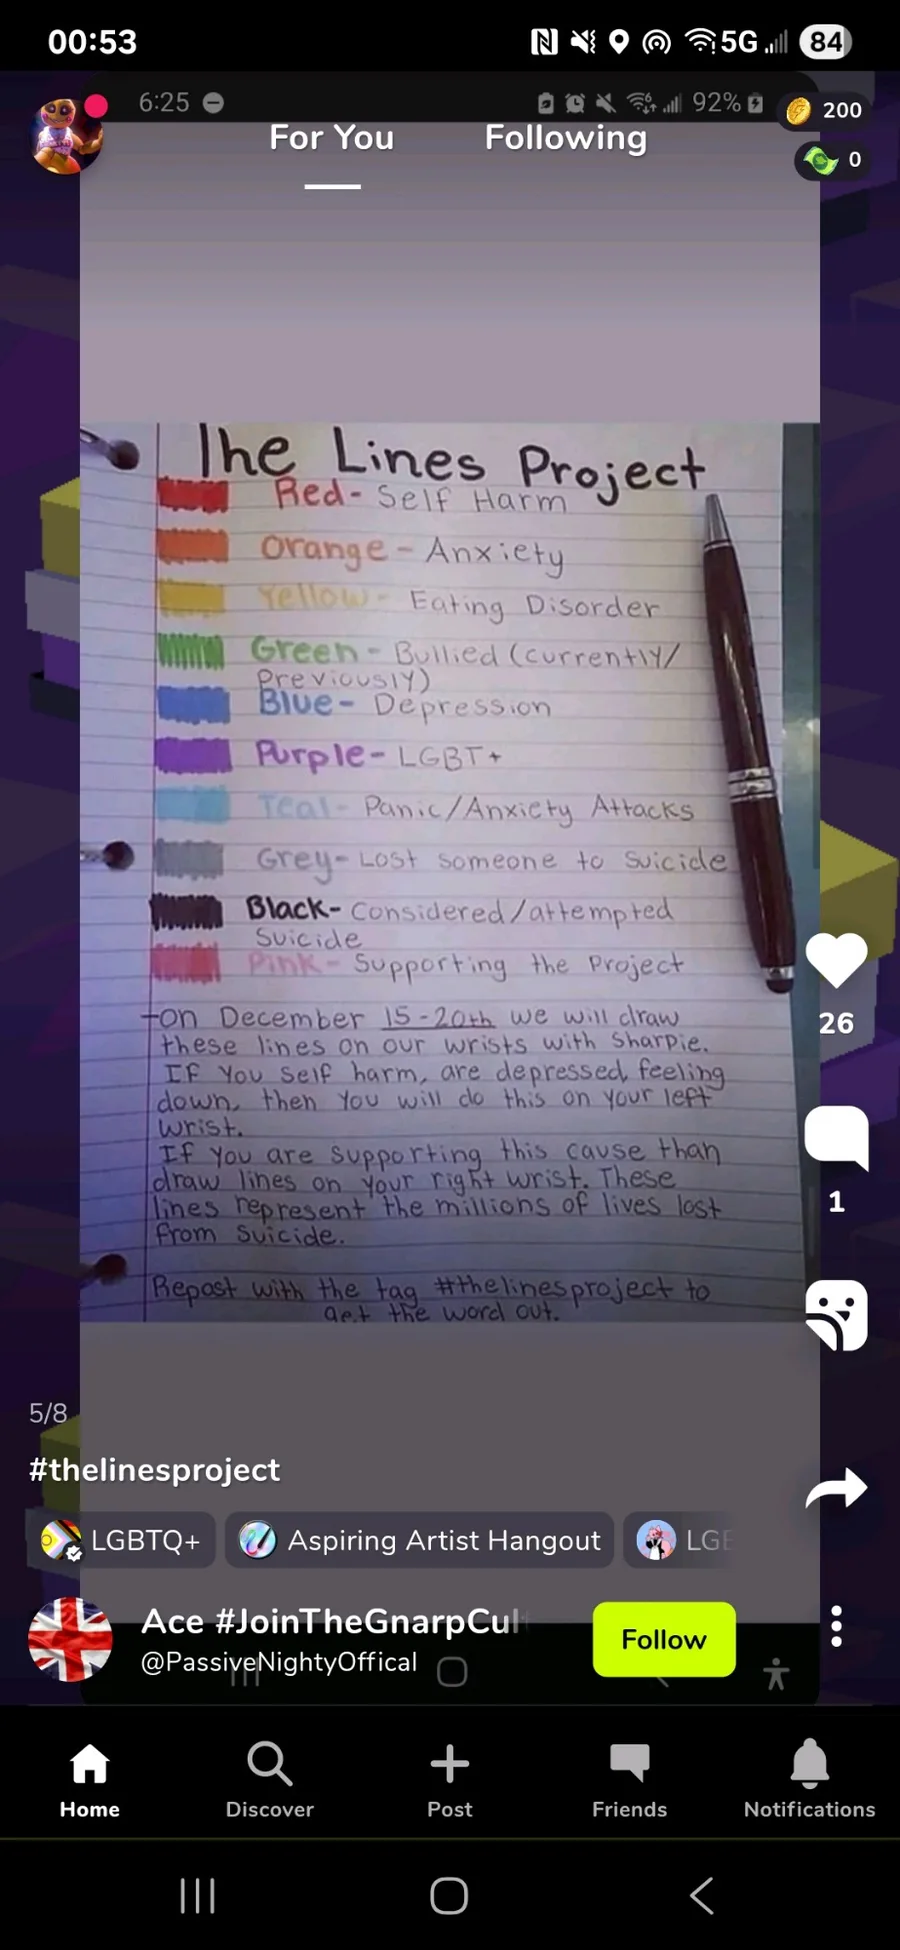 00:53
5G
84
6:25
92%
200
For You
Following
0
The Lines Project
Red- Self Harm
Orange - Anxiety
Yellow - Eating Disorder
Green - Bullied (currently/
Previously)
Blue- Depression
Purple- LGBT+
Teal- Panic/Anxiety Attacks
Grey- Lost someone to suicide
Black- Considered/attempted
Suicide
Pink - Supporting the Project
-On December 15-20th we will draw
these lines on our wrists with Sharpie.
If you self harm, are depressed, feeling
down, then you will do this on your left
wrist.
If you are supporting this cause than
draw lines on your right wrist. These
lines represent the millions of lives lost
from suicide.
Repost with the tag #thelinesproject to
get the word out.
26
1
5/8
#thelinesproject
LGBTQ+
Aspiring Artist Hangout
Ace #JoinTheGnarpCul
@PassiveNightyOffical
Follow
Home
Discover
Post
Friends
Notifications